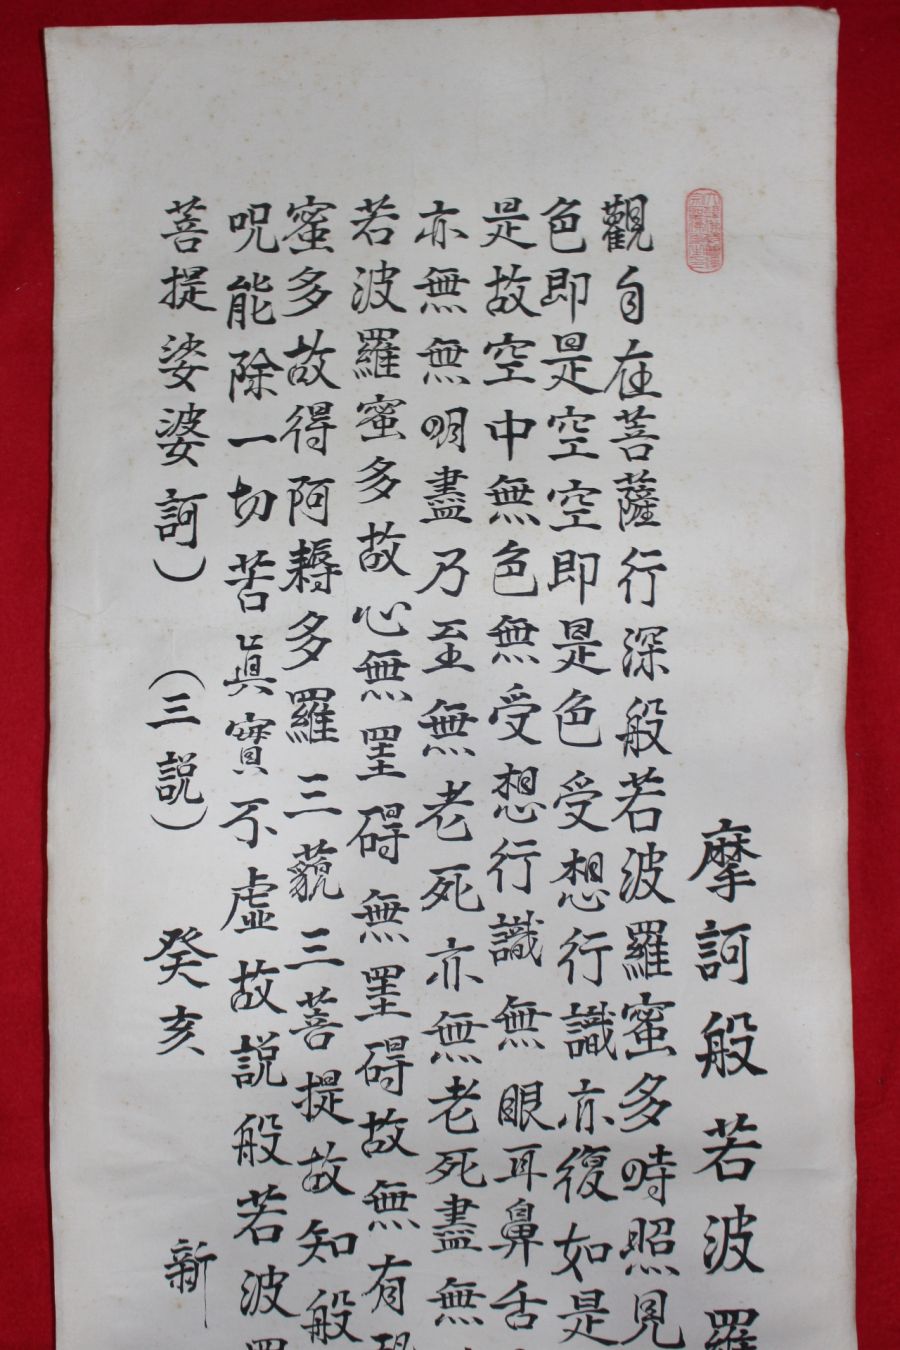 摩訶般若波羅
觀自在菩薩行深般若波羅蜜多時照見
色即是空空即是色受想行識亦復如是
是故空中無色無受想行識無眼耳鼻舌
亦無無明盡乃至無老死亦無老死盡無
若波羅蜜多故心無罣碍無罣碍故無有恐
蜜多故得阿耨多羅三藐三菩提故知般
呪能除一切苦眞實不虛故說般若波羅
菩提娑婆訶）（三說）癸亥 新